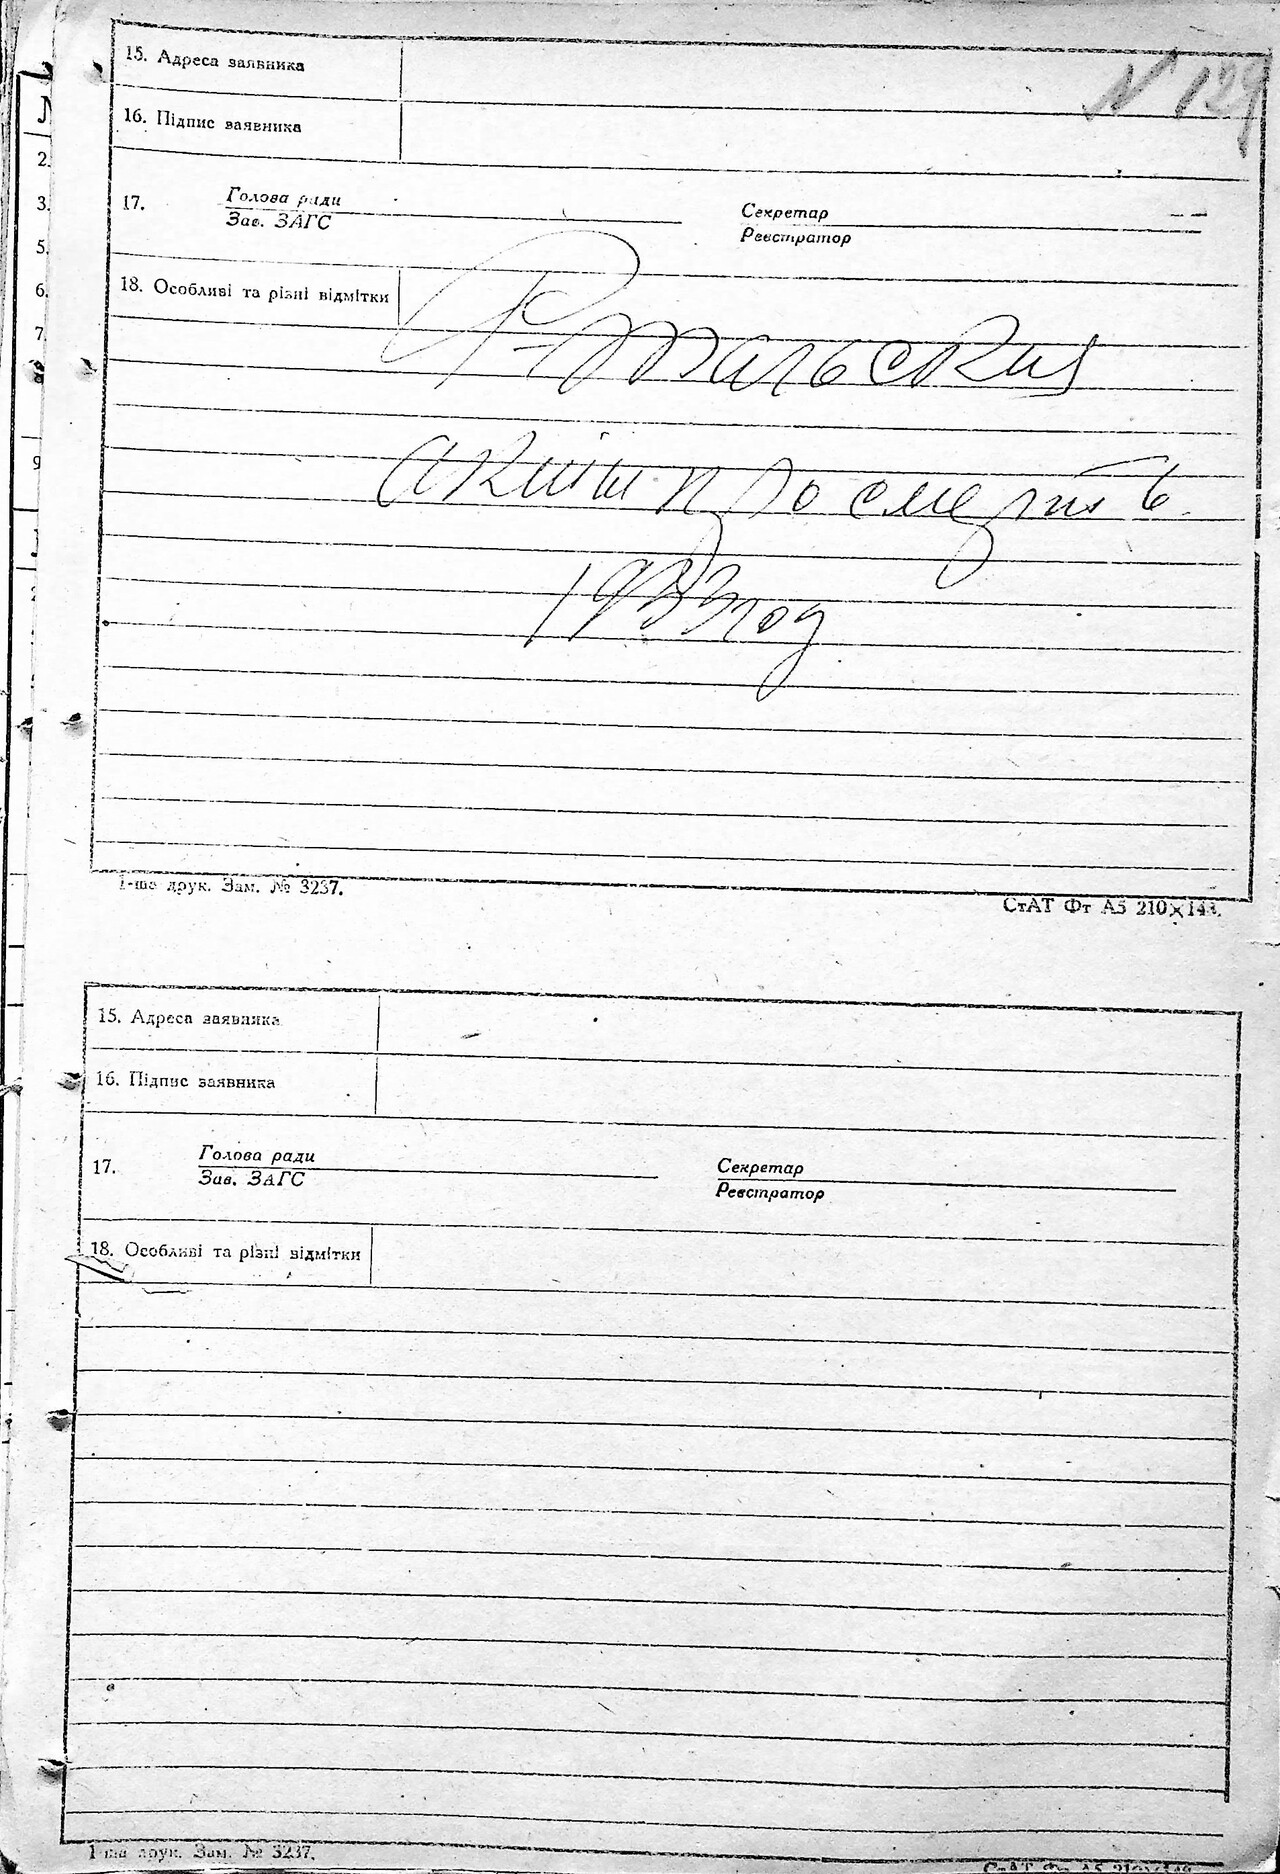 N 129
15. Адреса заявника
16. Підпис заявника
17. Голова ради
Зав. ЗАГС
Секретар
Реєстратор
18. Особливі та різні відмітки
актів про смерть
1933 год
1-ша друк. Зам. № 3237.
СтАТ Фт А5 210×148.
15. Адреса заявника
16. Підпис заявника
17. Голова ради
Зав. ЗАГС
Секретар
Реєстратор
18. Особливі та різні відмітки
1-ша друк. Зам. № 3237.
СтАТ Фт А5 210×148
2.
3.
5.
6.
7.
9